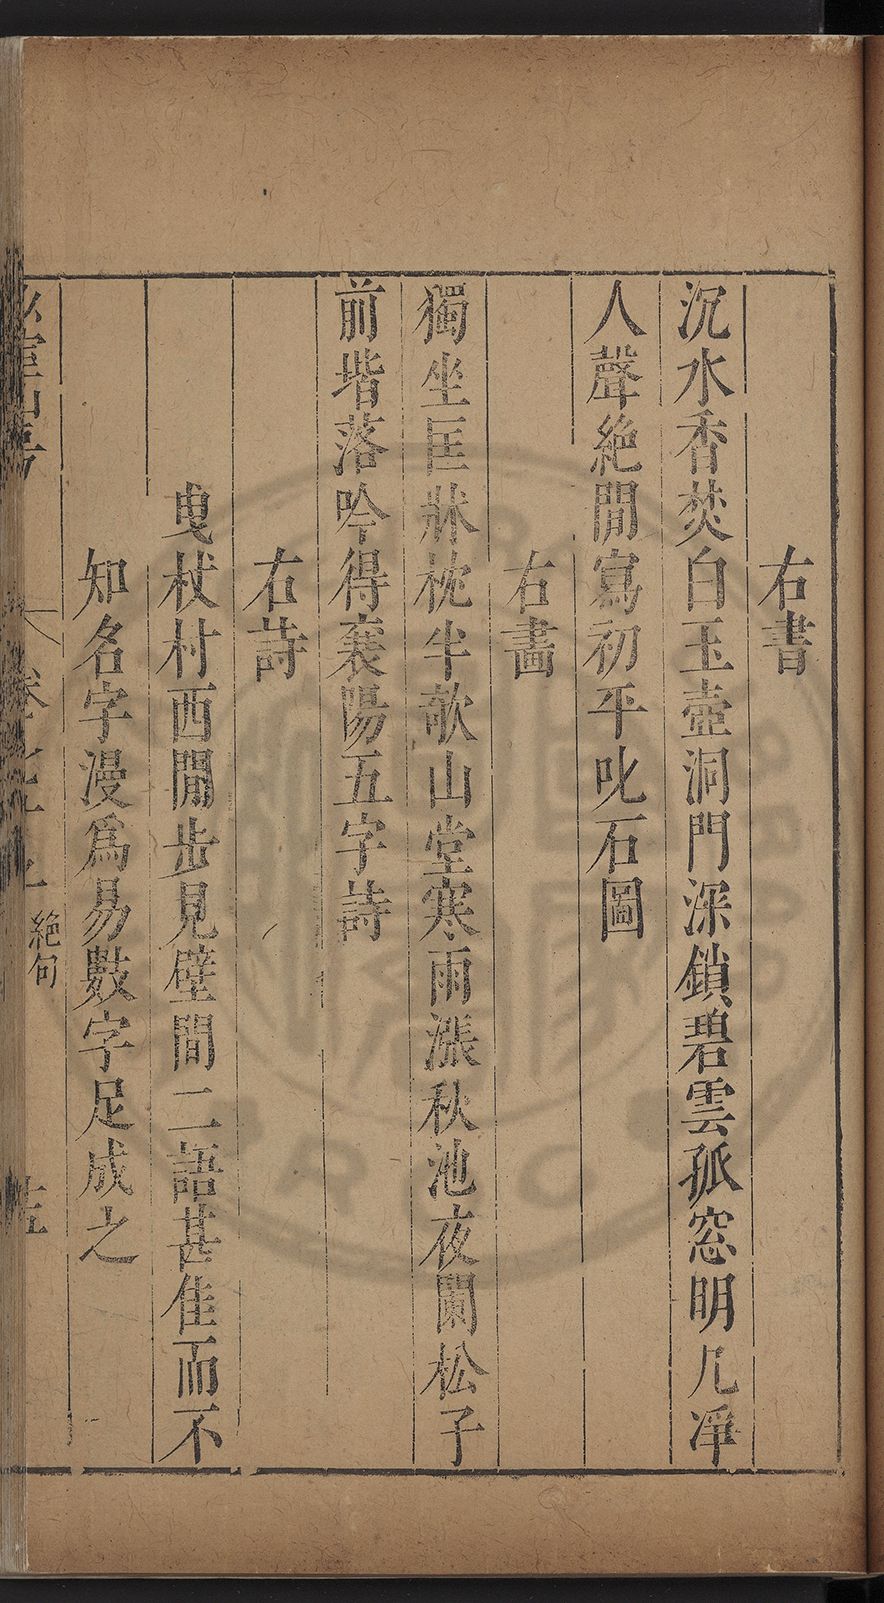 右書
沉水香焚白玉壺洞門深鎖碧雲孤窓明几凈
人聲絶閒寫初平叱石圖
右畵
獨坐匡牀枕半欹山堂寒雨漲秋池夜闌松子
前堦落吟得襄陽五字詩
右詩
曳杖村西閒步見壁間二語甚佳而不
知名字漫爲易數字足成之
絶句